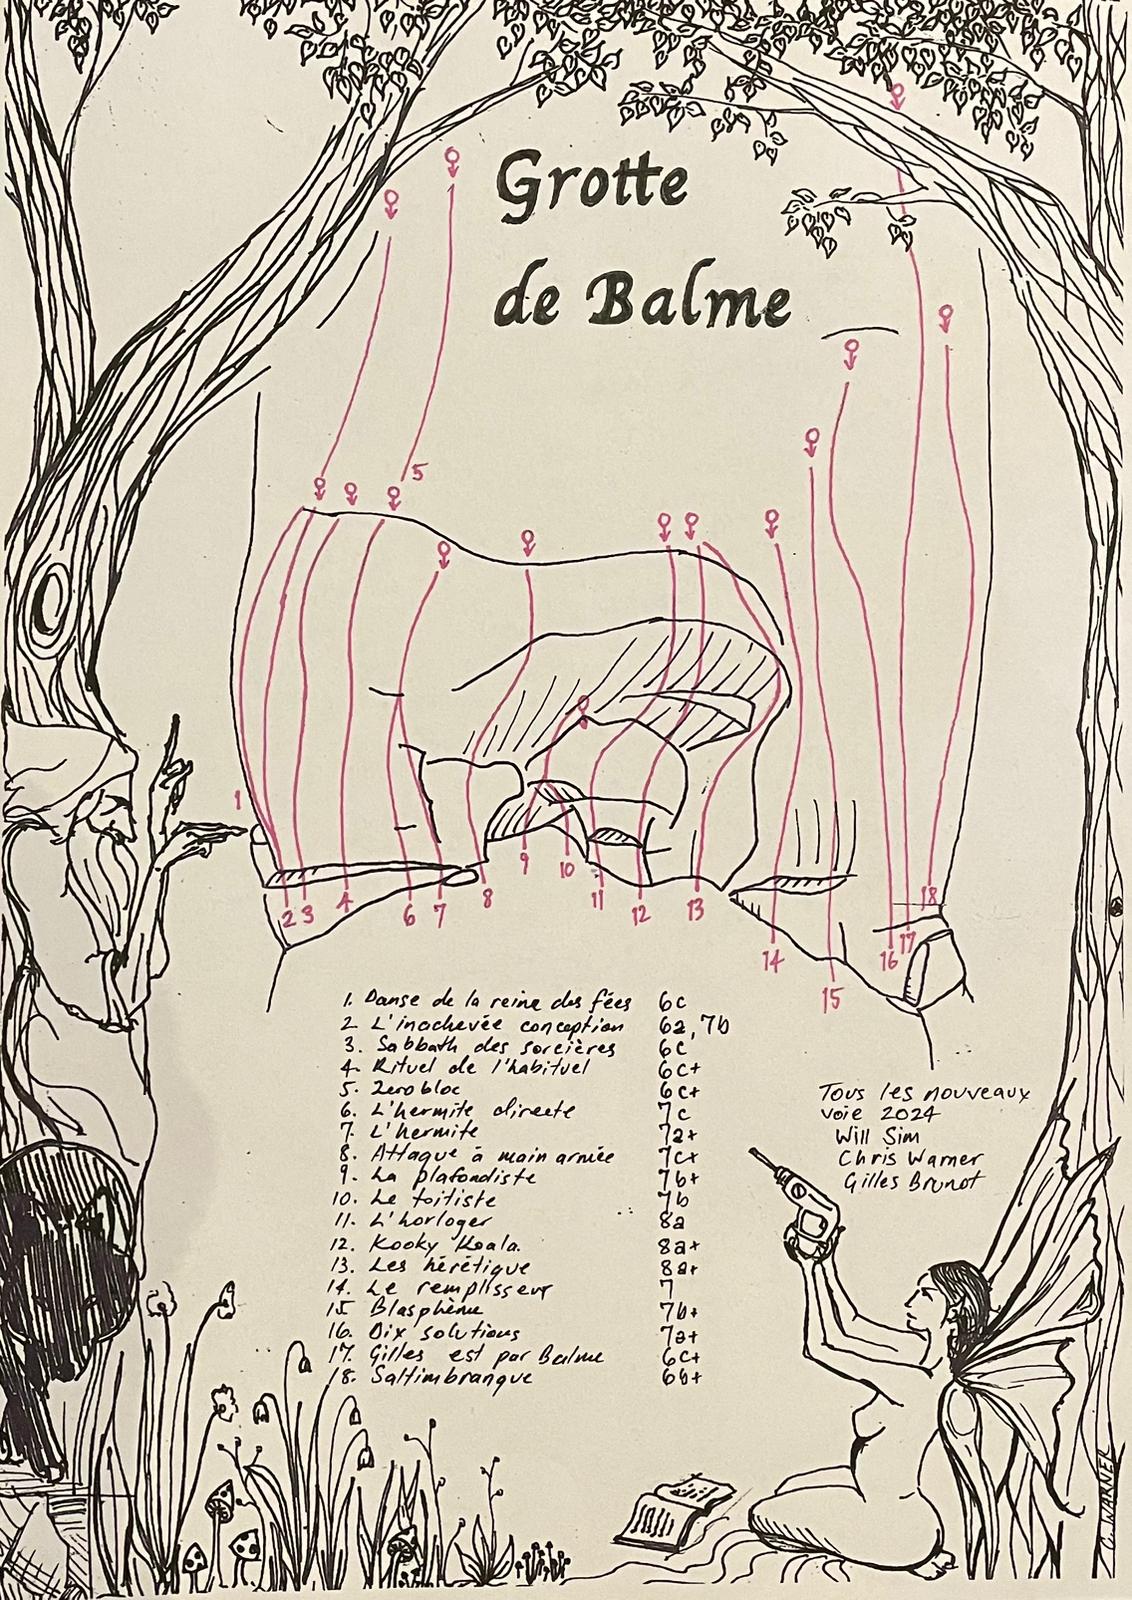 Grotte
de Balme
5
1
2 3 4 6 7 8 9 10 11 12 13 14 15 16 17 18
1. Danse de la reine des fées 6c
2 L'inachevée conception 6a, 7b
3. Sabbath des sorcières 6c
4. Rituel de l'habituel 6c+
5. Zerobloc 6c+
6. L'hermite directe 7c
7. L'hermite 7a+
8. Attaque à main armée 7c+
9. La plafondiste 7b+
10. Le toitiste 7b
11. L'horloger 8a
12. Kooky Koala. 8a+
13. Les hérétique 8a+
14. Le remplisseur 7
15 Blasphème 7b+
16. Dix solutions 7a+
17. Gilles est par Balme 6c+
18. Saltimbranque 6b+
Tous les nouveaux
voie 2024
Will Sim
Chris Warner
Gilles Brunot
C. WARNER